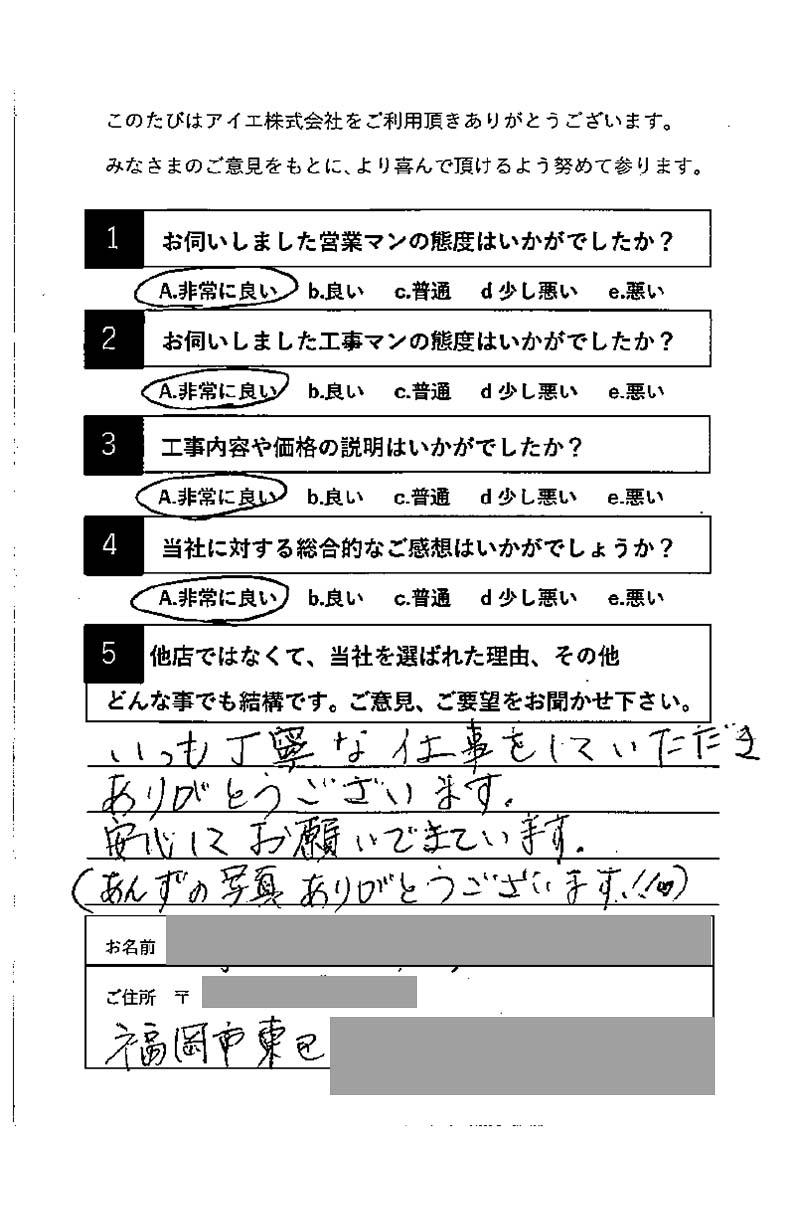 このたびはアイエ株式会社をご利用頂きありがとうございます。
みなさまのご意見をもとに、より喜んで頂けるよう努めて参ります。
1 お伺いしました営業マンの態度はいかがでしたか?
A.非常に良い b.良い c.普通 d 少し悪い e.悪い
2 お伺いしました工事マンの態度はいかがでしたか?
A.非常に良い b.良い c.普通 d 少し悪い e.悪い
3 工事内容や価格の説明はいかがでしたか?
A.非常に良い b.良い c.普通 d 少し悪い e.悪い
4 当社に対する総合的なご感想はいかがでしょうか?
A.非常に良い b.良い c.普通 d 少し悪い e.悪い
5 他店ではなくて、当社を選ばれた理由、その他
どんな事でも結構です。ご意見、ご要望をお聞かせ下さい。
いつも丁寧な仕事をしていただき
ありがとうございます。
安心してお願いできています。
(あんずの写真ありがとうございます!!)
お名前
ご住所 〒
福岡市東区